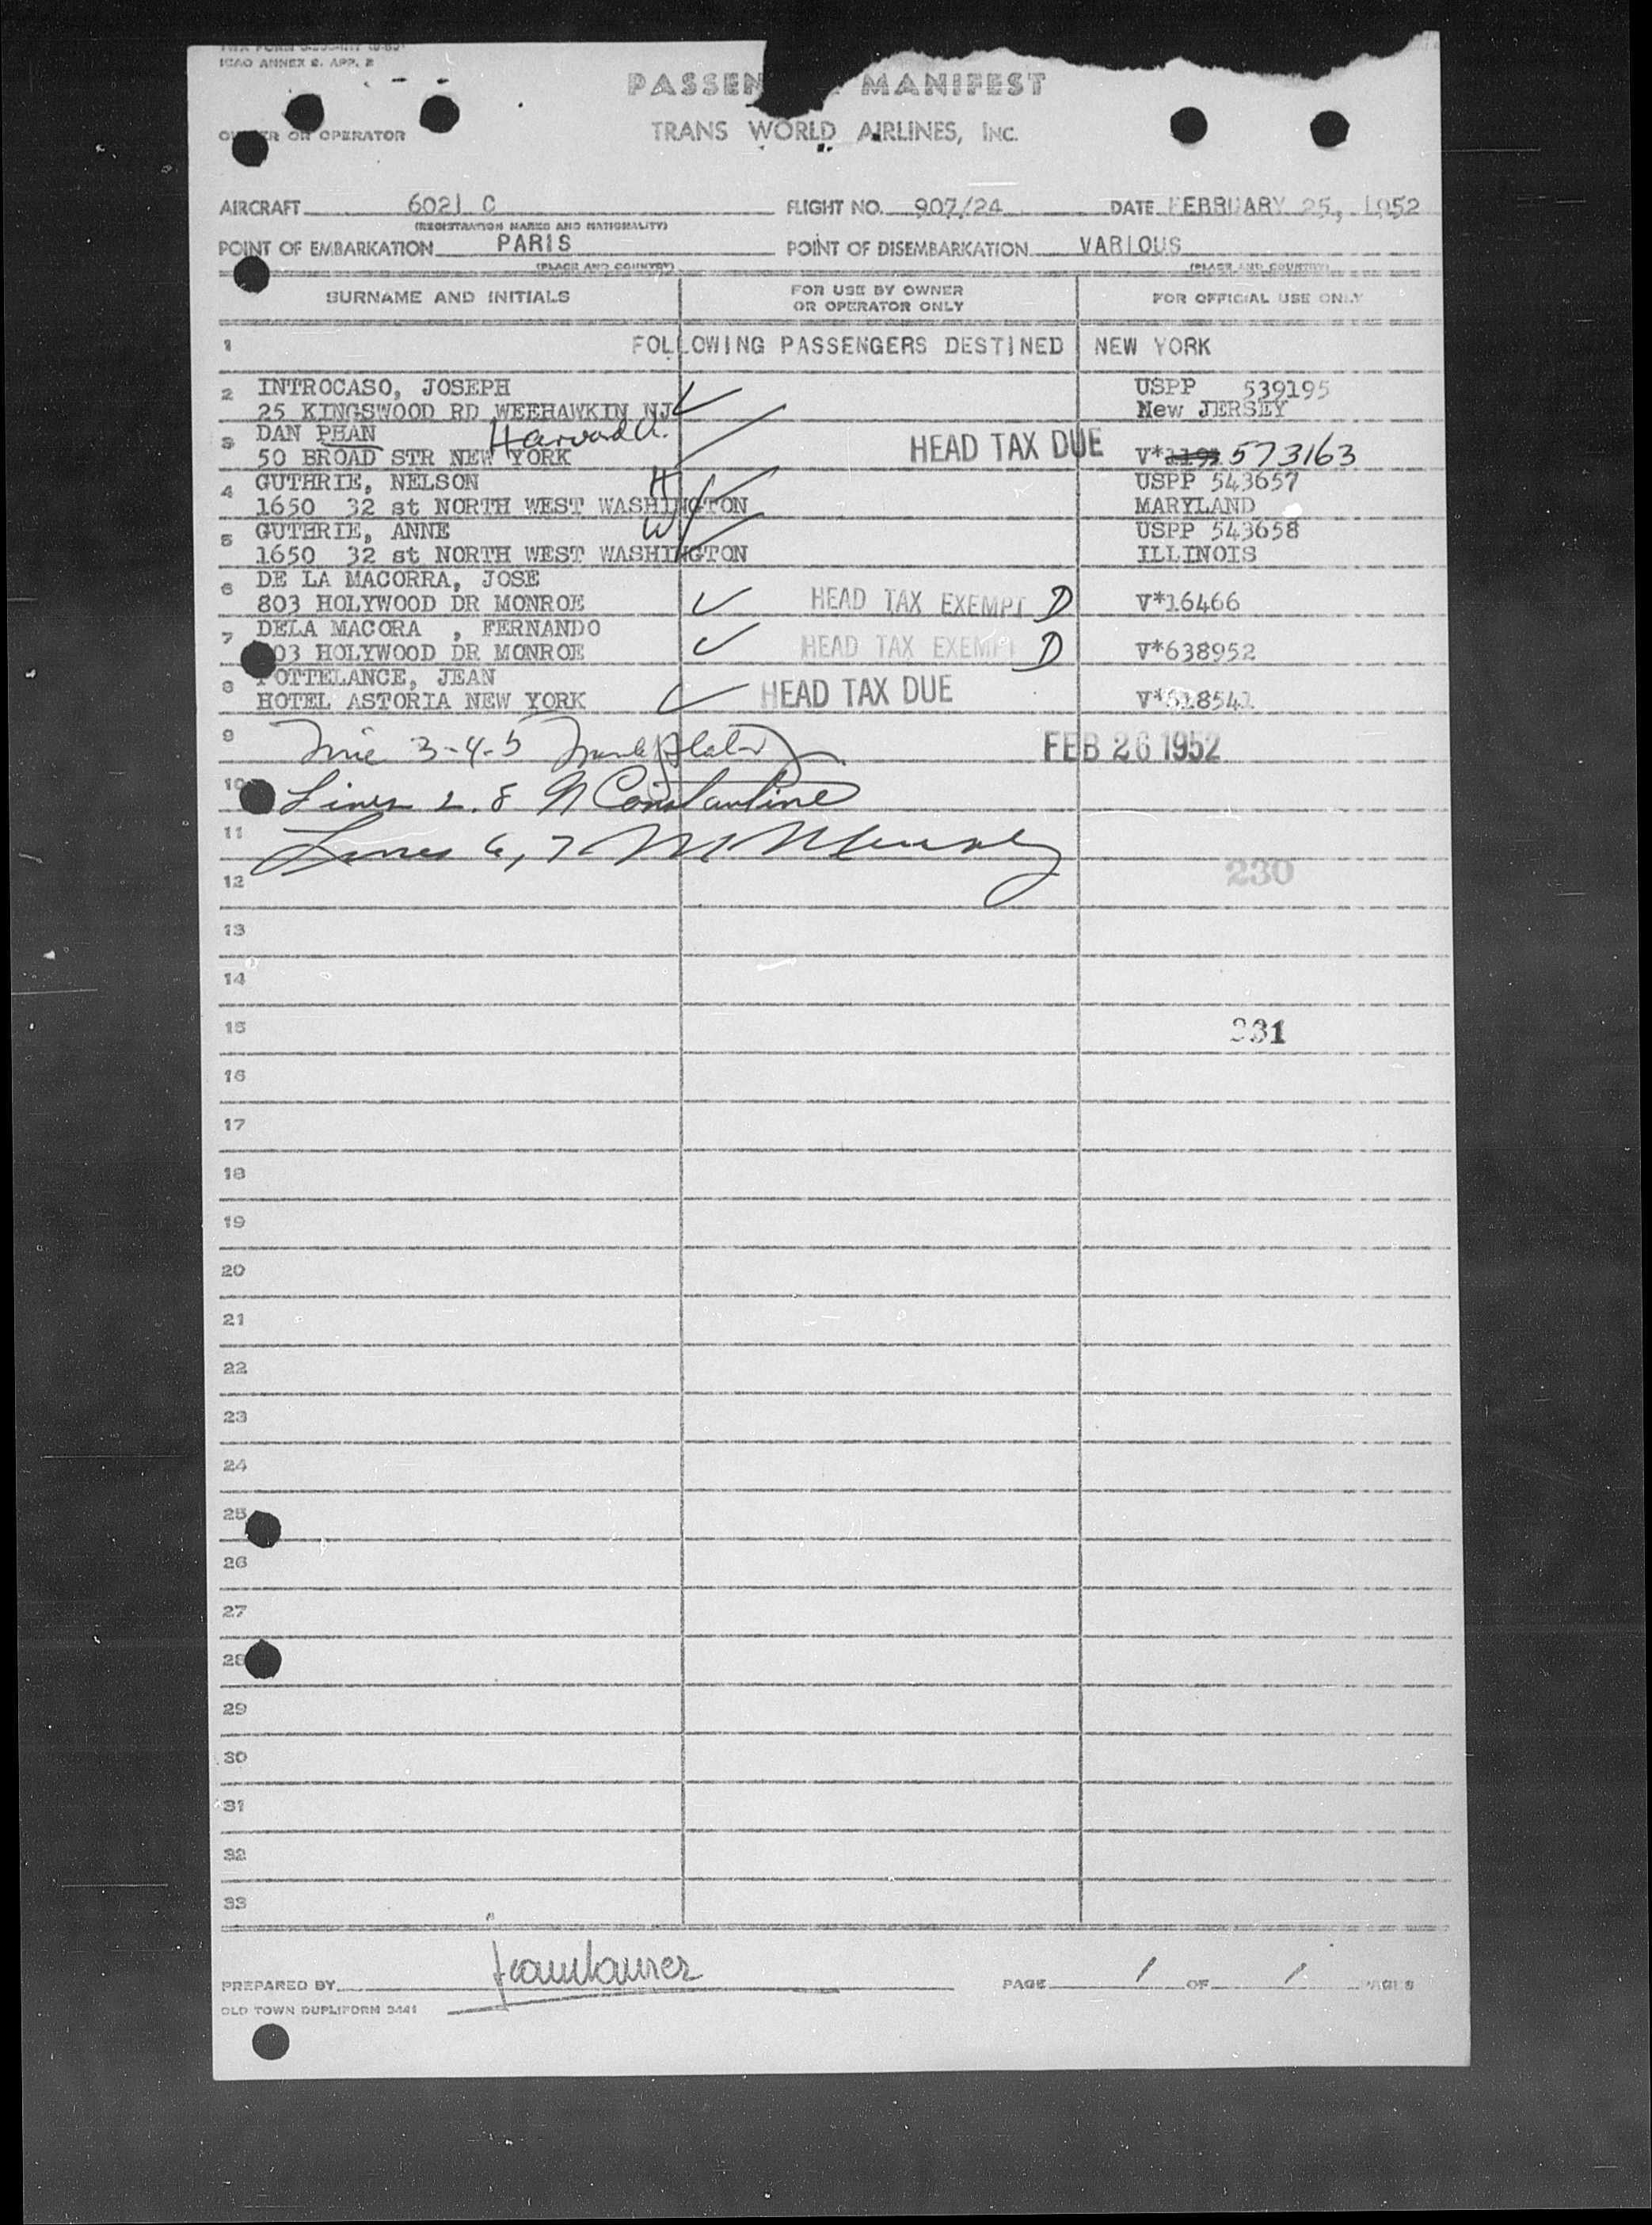 ICAO ANNEX 9. APP. 2
PASSEN MANIFEST
OWNER OR OPERATOR
TRANS WORLD AIRLINES, INC.
AIRCRAFT 6021 C FLIGHT NO. 907/24 DATE FEBRUARY 25, 1952
(REGISTRATION MARKS AND NATIONALITY)
POINT OF EMBARKATION PARIS POINT OF DISEMBARKATION VARIOUS
(PLACE AND COUNTRY) (PLACE AND COUNTRY)
SURNAME AND INITIALS FOR USE BY OWNER OR OPERATOR ONLY FOR OFFICIAL USE ONLY
1 FOLLOWING PASSENGERS DESTINED NEW YORK
2 INTROCASO, JOSEPH USPP 539195
25 KINGSWOOD RD WEEHAWKIN NJ New JERSEY
3 DAN PHAN Harvard U. HEAD TAX DUE
50 BROAD STR NEW YORK V* 573163
4 GUTHRIE, NELSON H USPP 543657
1650 32 st NORTH WEST WASHINGTON MARYLAND
5 GUTHRIE, ANNE W USPP 543658
1650 32 st NORTH WEST WASHINGTON ILLINOIS
6 DE LA MACORRA, JOSE
803 HOLYWOOD DR MONROE HEAD TAX EXEMPT D V*16466
7 DELA MACORA , FERNANDO
03 HOLYWOOD DR MONROE HEAD TAX EXEMPT D V*638952
8 POTTELANCE, JEAN
HOTEL ASTORIA NEW YORK HEAD TAX DUE V*618541
9 3-4-5 FEB 26 1952
10 Lines 2. 8 N Constantine
11 Lines 6, 7
12 230
13
14
15 231
16
17
18
19
20
21
22
23
24
25
26
27
28
29
30
31
32
33
PREPARED BY PAGE 1 OF 1 PAGES
OLD TOWN DUPLIFORM 3441